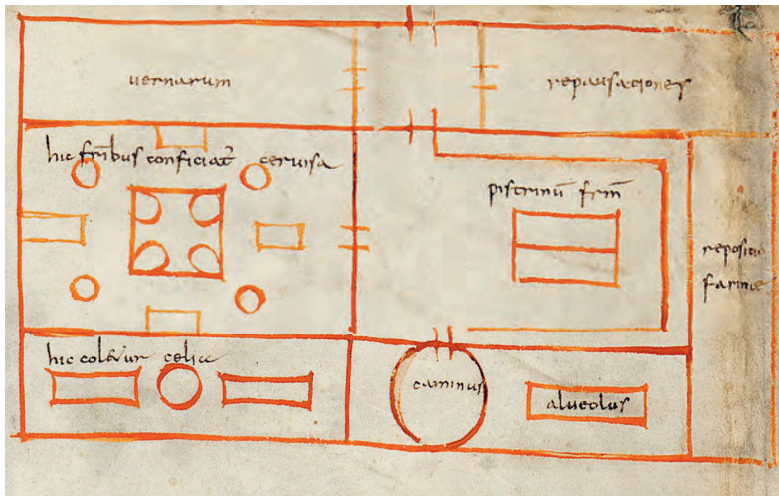 uernarum
repausationes
hic fr̄ibus conficiat̄ ceruisa
pistrinū frm̄
repositio
farine
hic coletur celia
caminus
alueolus